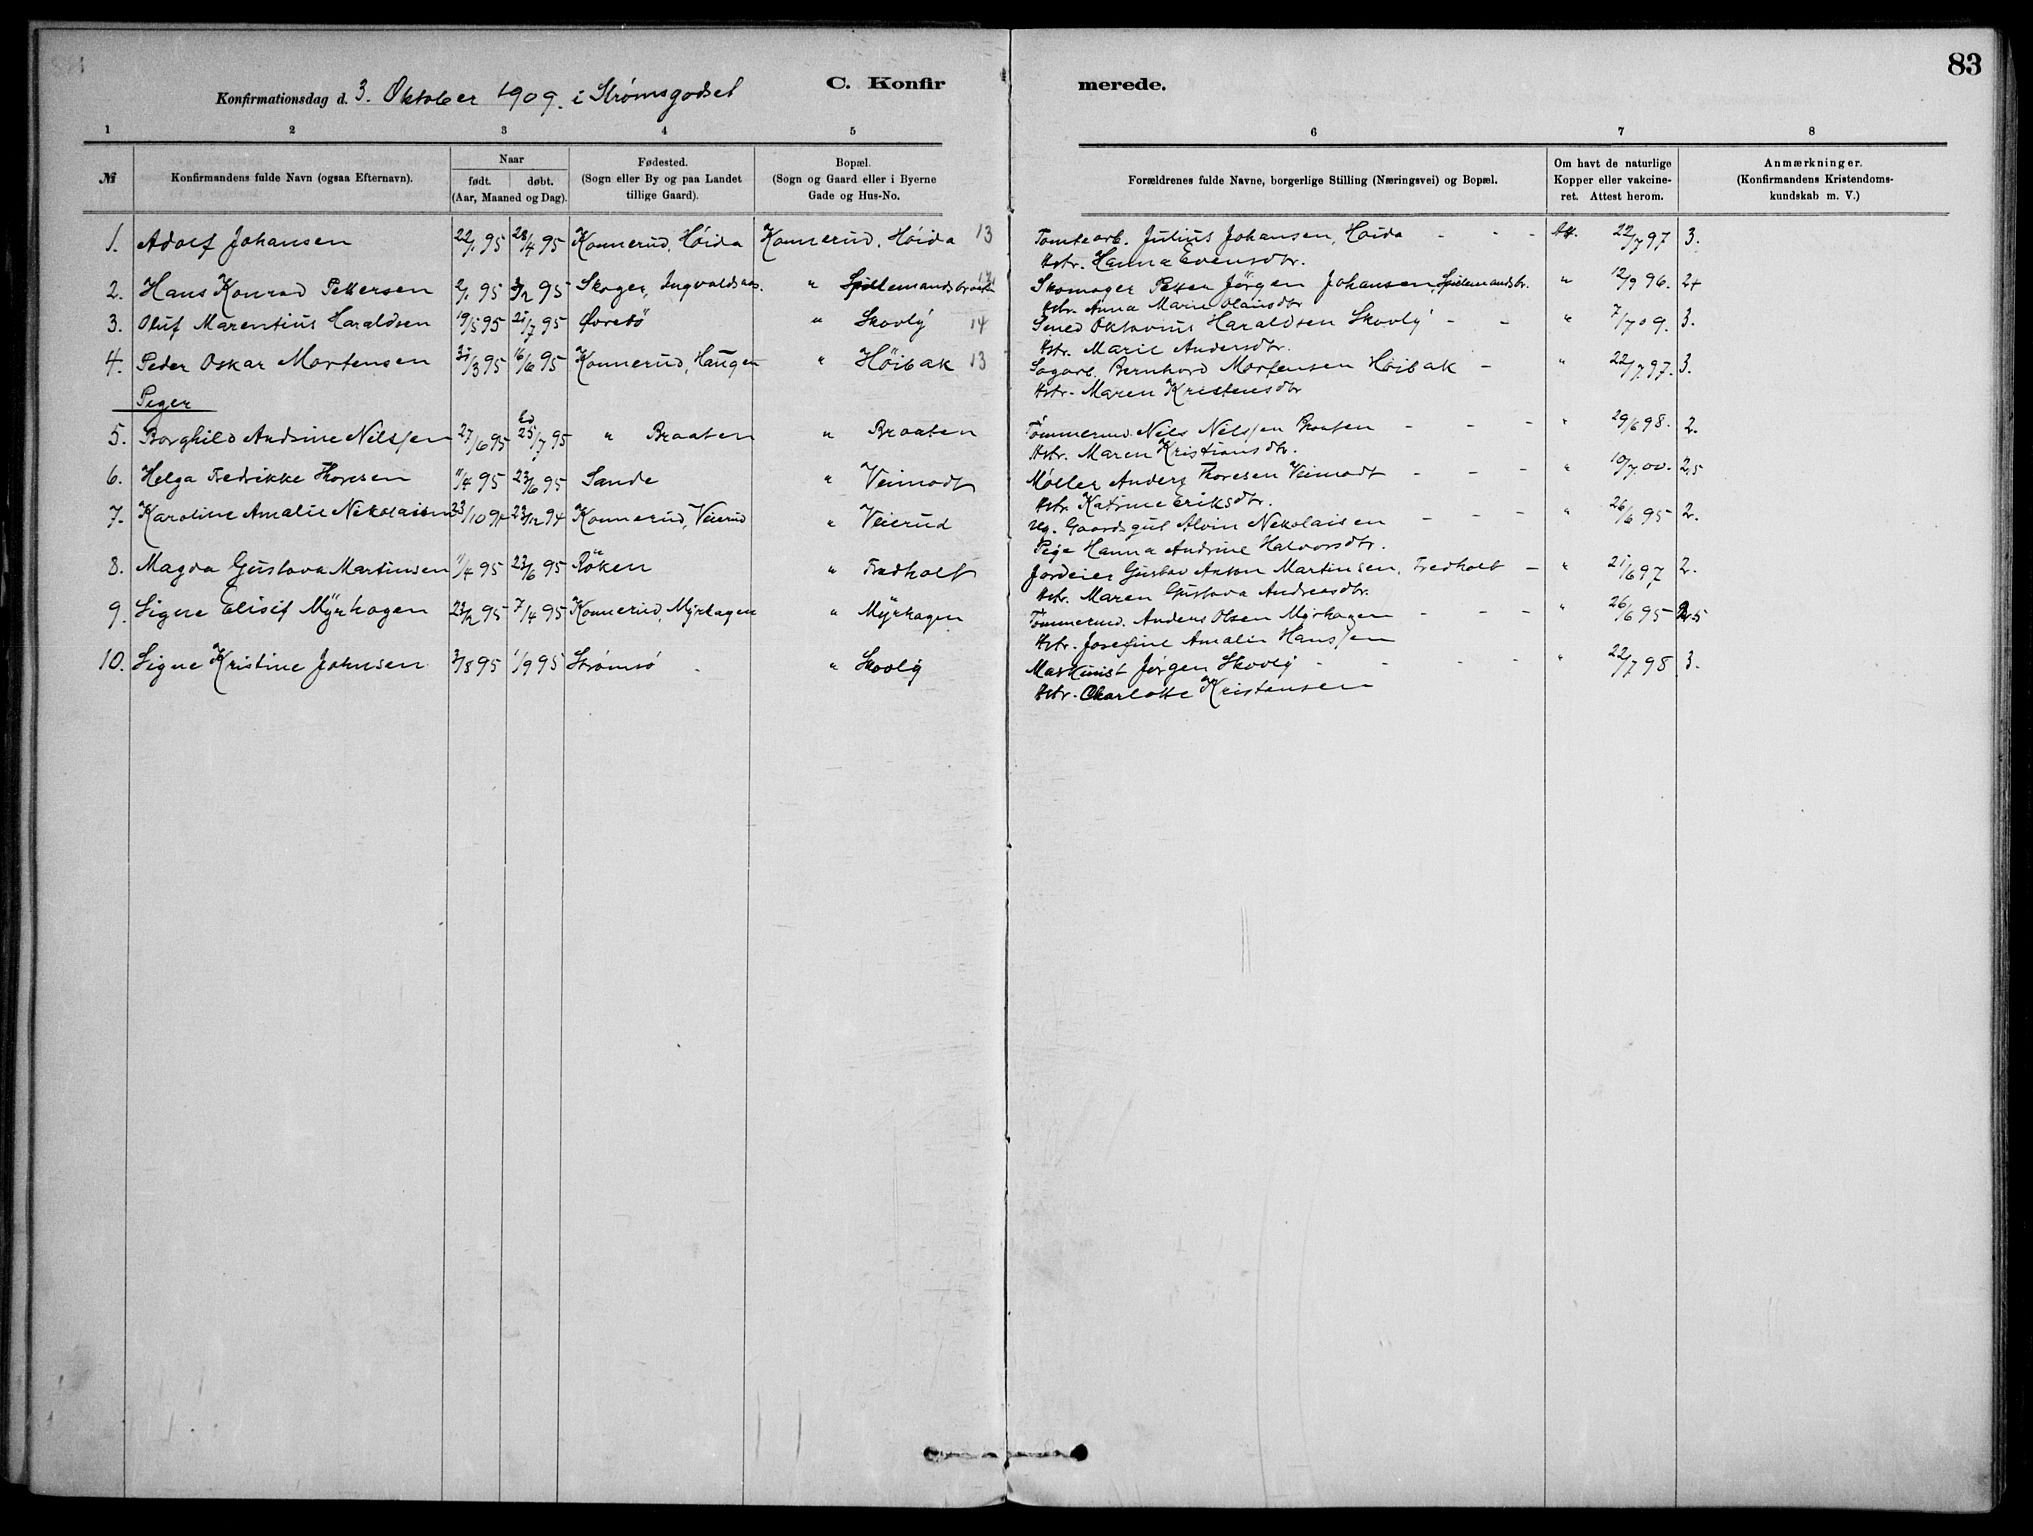 83
Konfirmationsdag d. 3. Oktober 1909. i Strømsgodset
C. Konfirmerede.
1 2 3 4 5 6 7 8
№ Konfirmandens fulde Navn (ogsaa Efternavn). Naar født. døbt. (Aar, Maaned og Dag). Fødested. (Sogn eller By og paa Landet tillige Gaard). Bopæl. (Sogn og Gaard eller i Byerne Gade og Hus-No. Forældrenes fulde Navne, borgerlige Stilling (Næringsvei) og Bopæl. Om havt de naturlige Kopper eller vakcineret. Attest herom. Anmærkninger. (Konfirmandens Kristendomskundskab m. V.)
1. Adolf Johansen 22/1 95 28/4 95 Konnerud, Höida Konnerud, Höida 13 Tomtearb. Julius Johansen, Höida - - - Att. 22/7 97 3.
Hstr. Hanna Evensdtr.
2. Hans Konrad Pettersen 2/1 95 3/2 95 Skoger, Ingvaldsaas " Spillemandsbraaten Skomager Petter Jörgen Johansen Spillemandsbr. " 12/9 96. 2+
Hstr. Anna Marie Olausdtr
3. Oluf Marentius Haraldsen 19/5 95 21/7 95 Øvrebö " Skovly 14 Smed Oktavius Haraldsen Skovly - - " 7/7 09. 3.
Hstr. Marie Andersdtr.
4. Peder Oskar Mortensen 31/3 95 16/6 95 Konnerud, Haugen " Höibak 13 Sagarb. Bernhard Mortensen Höibak - " 22/7 97. 3.
Hstr. Maren Kristensdtr
Piger
5. Borghild Andrine Nilssen 27/6 95 25/7 95 " Braaten " Braaten Tömmermd. Nils Nilssen Braaten - - - " 29/6 98. 2.
Hstr. Maren Kristiansdtr.
6. Helga Fredrikke Thoresen 11/4 95 23/6 95 Sande " Veimodt Møller Anders Thoresen Veimodt - - - " 10/7 00. 2,5
Hstr. Katrine Eriksdtr.
7. Karoline Amalie Nikolaisen 23/10 94 23/12 94 Konnerud, Veierud " Veierud Ug. Gaardsgut Alvin Nikolaisen - - - " 26/6 95 2.
Pige Hanna Andrine Halvorsdtr.
8. Magda Gustava Martinsen 11/4 95 23/6 95 Röken " Fredholt Jordeier Gustav Anton Martinsen, Fredholt - " 21/6 97 2.
Hstr. Maren Gustava Andreasdtr.
9. Signe Elisif Myrhagen 23/2 95 7/4 95 Konnerud, Myrhagen " Myrhagen Tömmermd. Anders Olsen Myrhagen - - - " 26/6 95 2,5
Hstr. Josefine Amalie Hanssen
10. Signe Kristine Johnsen 3/8 95 1/9 95 Strømsö - " Skovly Maskinist Jørgen Skovly - - - - " 22/7 98 3.
Hstr. Charlotte Kristensen